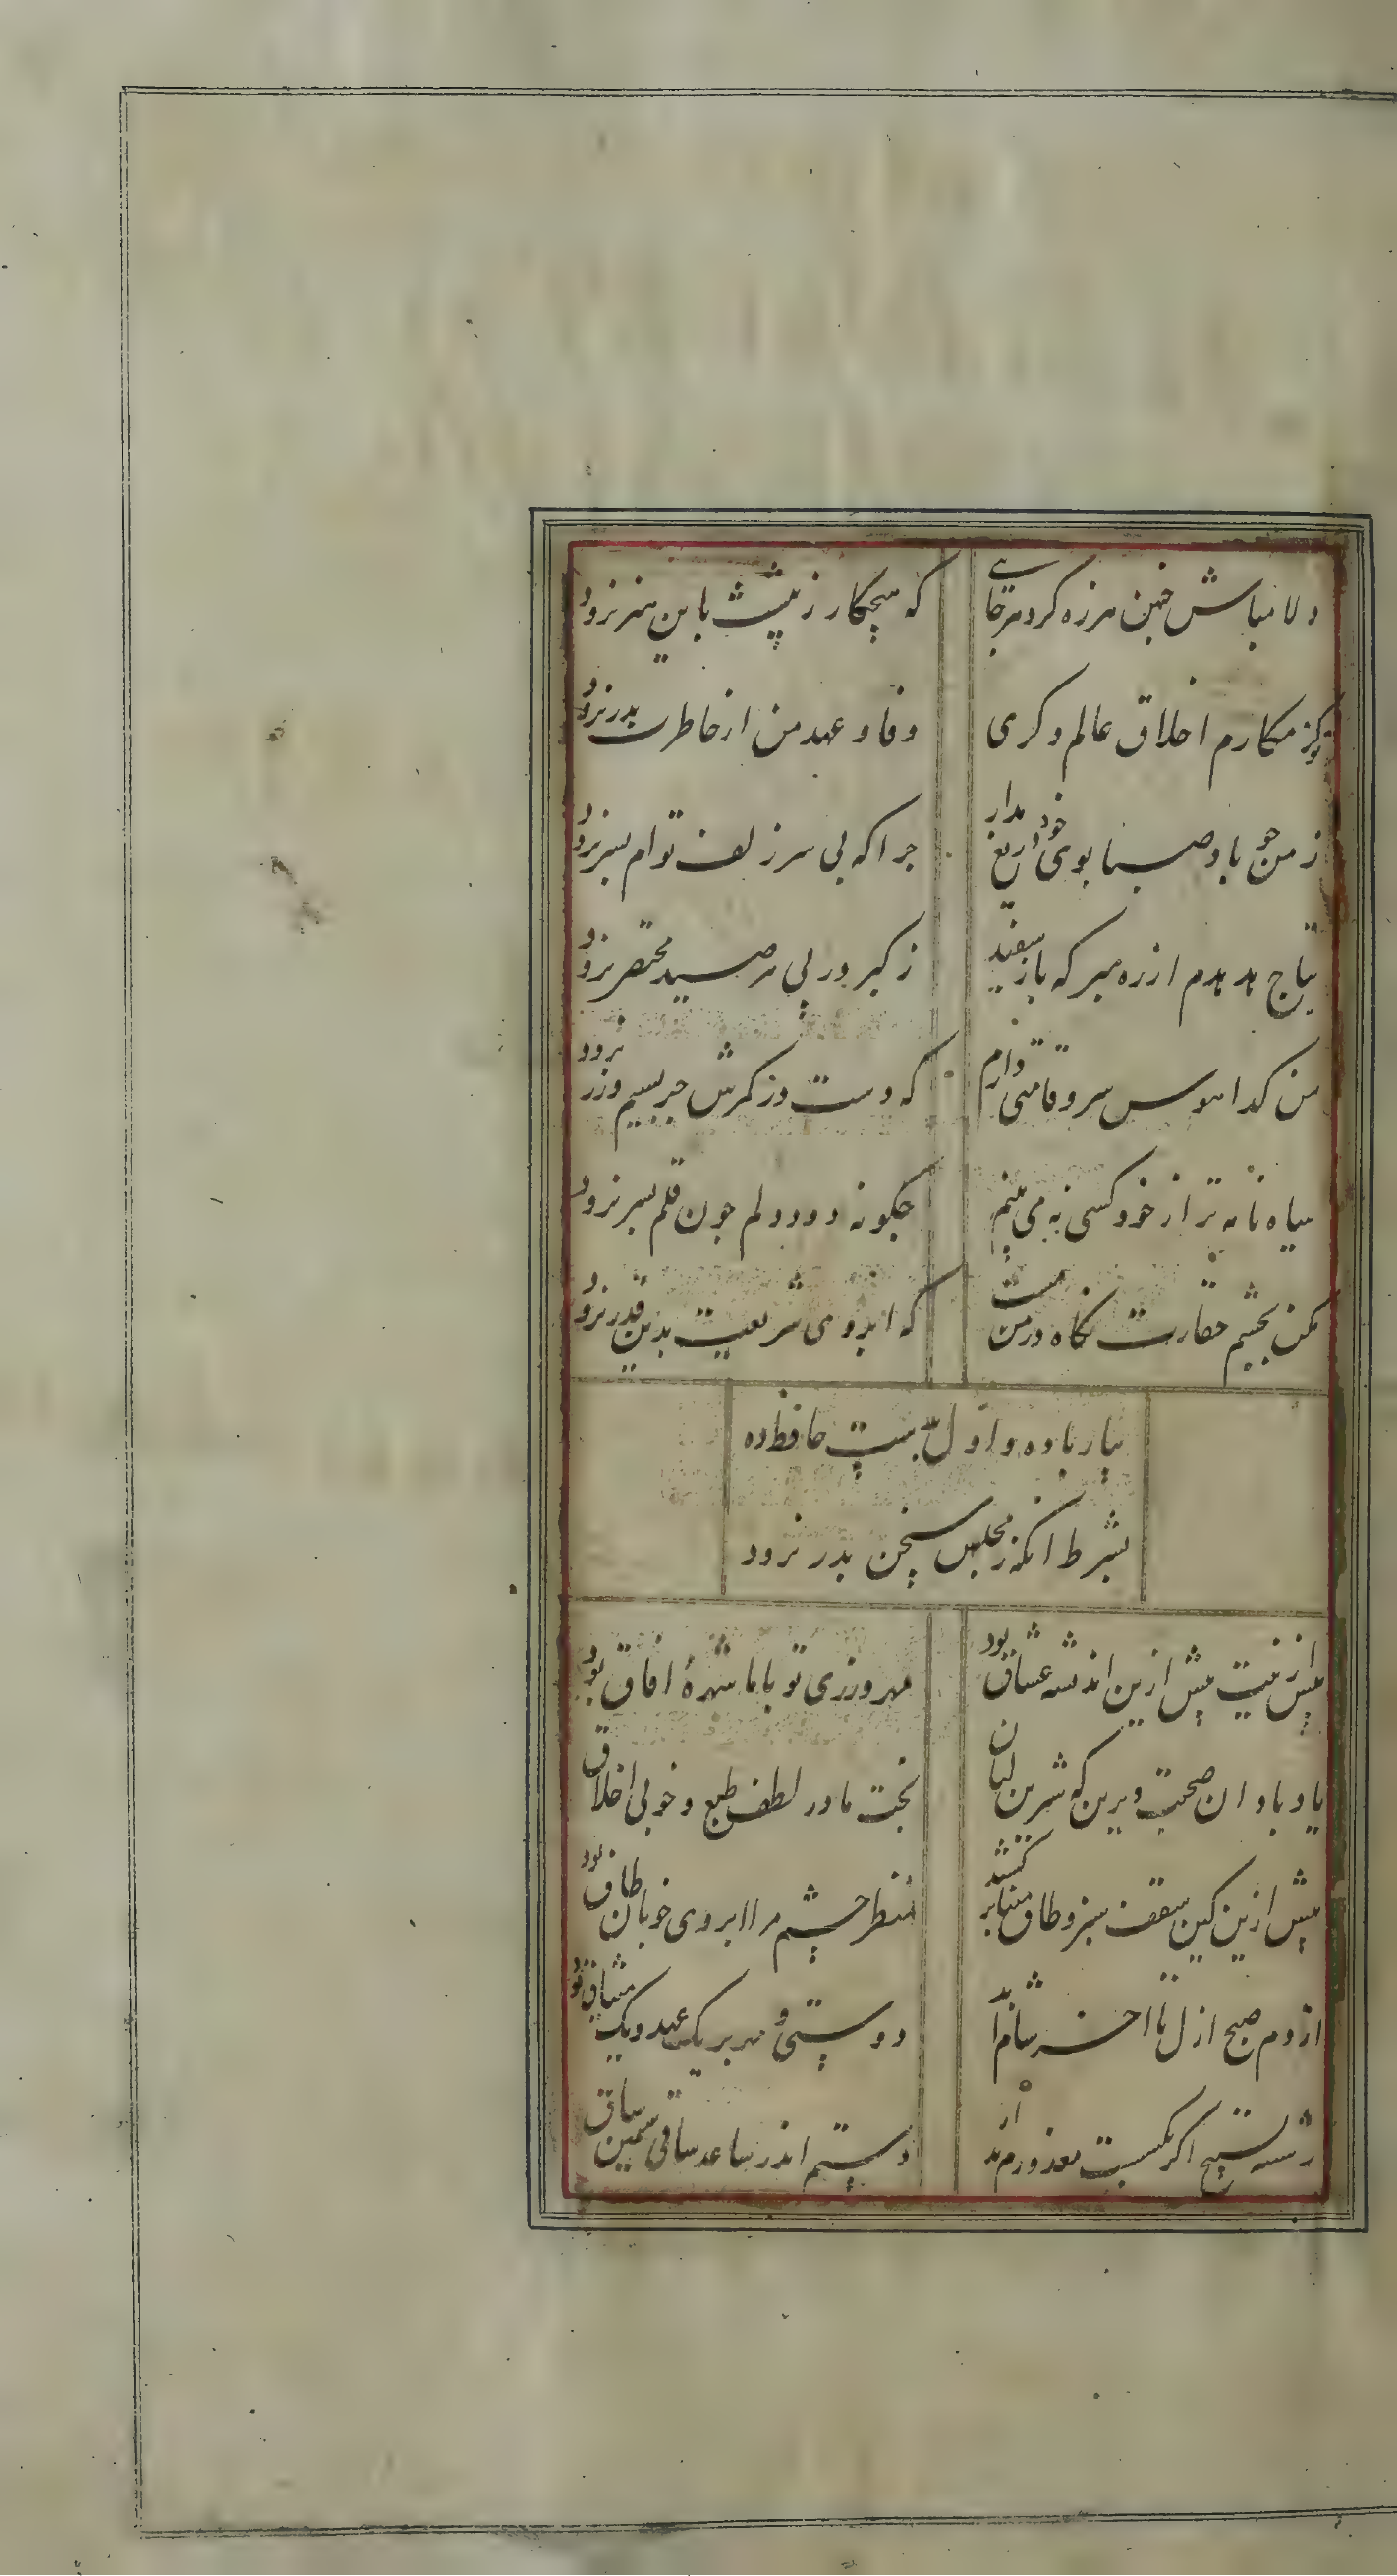 دلا مباش چنین هرزه گرد هرجایی
که هیچکار ز پیشت باین هنر نرود
تو کز مکارم اخلاق عالم دگری
وفا و عهد من از خاطرت بدر نرود
ز من چو باد صبا بوی خود دریغ مدار
چرا که بی سر زلف توام بسر نرود
بتاج هدهدم از ره مبر که باز سفید
ز کبر در پی هر صید مختصر نرود
من کدا هوس سرو قامتی دارم
که دست در کمرش جز بسیم و زر نرود
سیاه نامه تر از خود کسی نه می بینم
چگونه دود دلم چون قلم بسر نرود
مکن بچشم حقارت نگاه در من مست
که ابروی شریعت بدین قدر نرود
بیار باده و اول بدست حافظ ده
بشرط انکه ز مجلس سخن بدر نرود
پیش ازینت بیش ازین اندیشه عشاق بود
مهرورزی تو با ما شهرهٔ افاق بود
یاد باد ان صحبت دیرین که شیرین لبان
بحث ما در لطف طبع و خوبی اخلاق
پیش ازین کین سقف سبز و طاق مینا بر کشند
منظر چشم مرا ابروی خوبان طاق بود
از دم صبح ازل تا اخر شام ابد
دوستی و مهر بر یک عهد و یک میثاق بود
رشته تسبیح اکر بگسست معذورم بدار
دستم اندر ساعد ساقی سیمین ساق